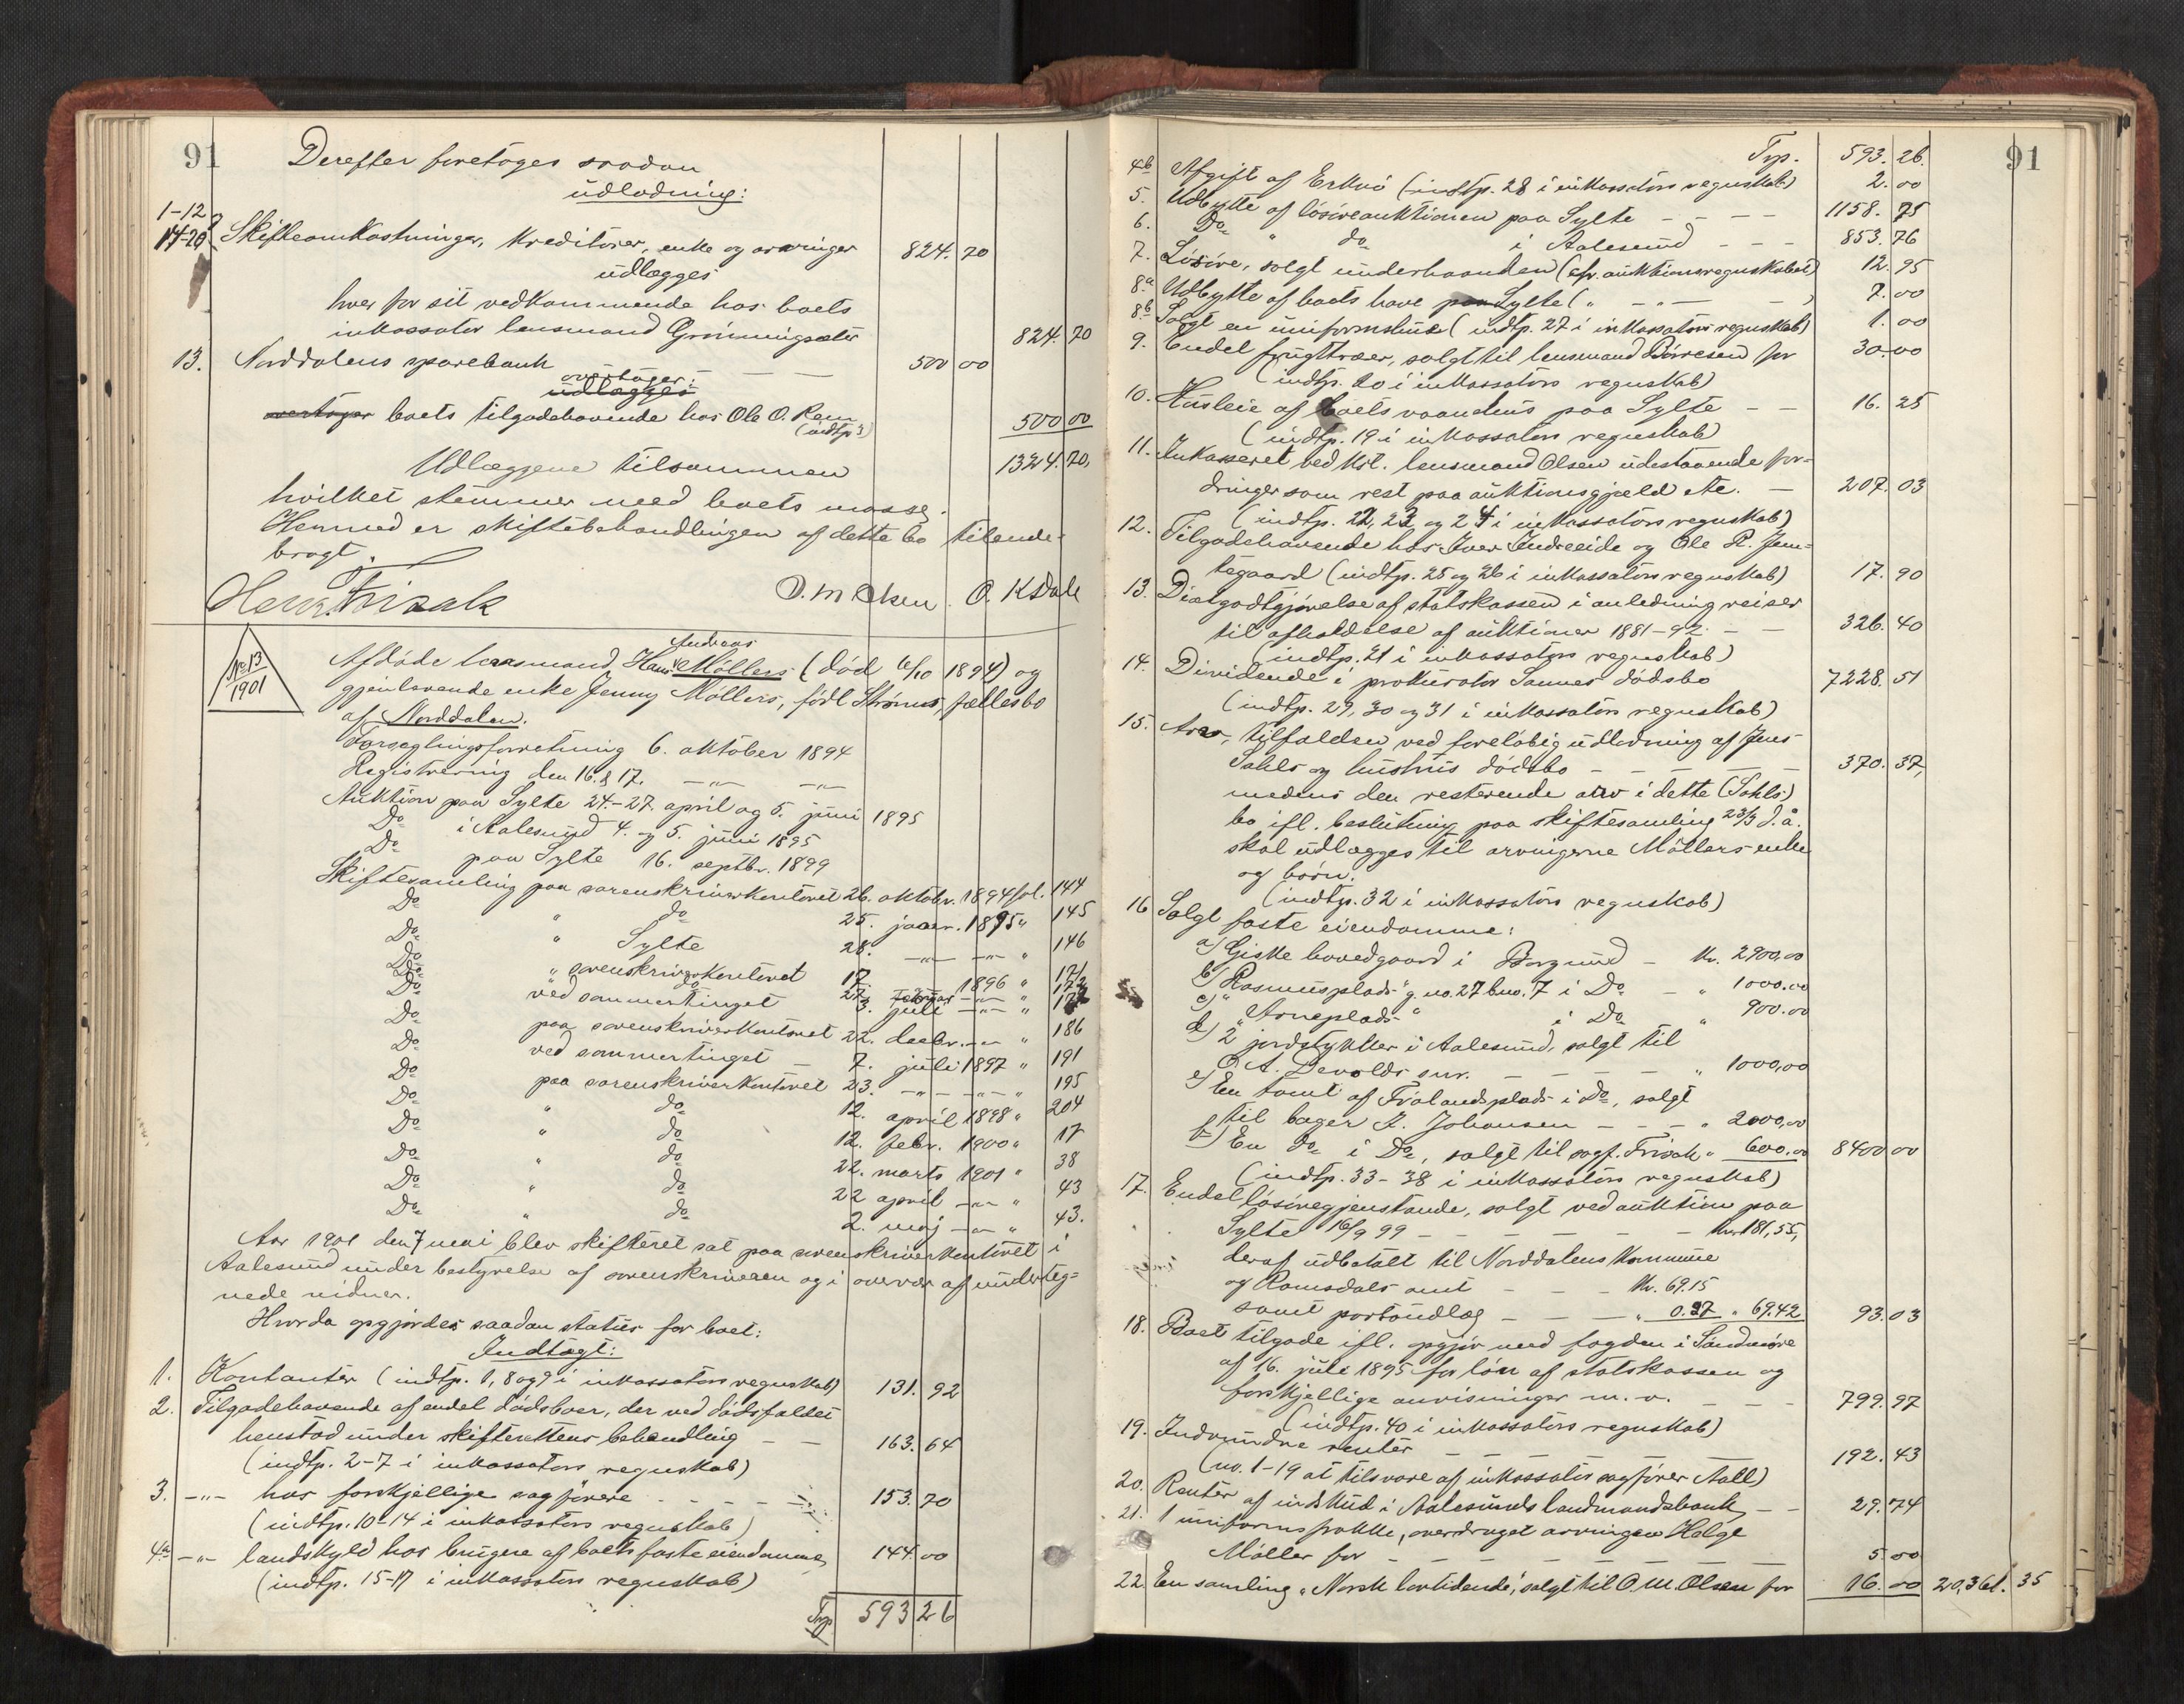 91
Derefter foretoges saadan
udlodning:
1-12
14-20 Skifteomkostninger, kreditorer, enke og arvinger 824.70
udlægges
hver for sit vedkommende hos boets
inkassator lensmand Grønningsæter 824.70
13. Norddalens sparebank — — 500 00
overtager:
udlægges
overtager boets tilgodehavende hos Ole O. Rem
(indtp 3) 500 00
Udlæggene tilsammen 1324.70,
hvilket stemmer med boets masse.
Hermed er skiftebehandlingen af dette bo tilende-
bragt.
O. M Olsen. O. K Dale
No 13
1901
Andreas
Afdøde lensmand Hans Møllers (død 6/10 1894) og
gjenlevende enke Jenny Møllers, født Strøms, fællesbo
af Norddalen.
Forseglingsforretning 6. oktober 1894
Registrering den 16. & 17. —"— —"—
Auktion paa Sylte 24.-27. april og 5. juni 1895
Do i Aalesund 4. og 5. juni 1895
Do paa Sylte 16. septbr. 1899
Skiftesamling paa sorenskriverkontoret 26. oktobr. 1894 fol. 144
Do " do 25. januar. 1895 " 145
Do " Sylte 28. —"— —"— " 146
Do " sorenskriverkontoret 17. 1896 " 171
Do do 27. februar —"— " 172
Do ved sommertinget 3. juli —"— "
Do paa sorenskriverkontoret 22. decbr. —"— " 186
Do ved sommertinget — 7. juli 1897 " 191
Do paa sorenskriverkontoret 23. —"— —"— " 195
Do " do 12. april 1898 " 204
Do " do 12. febr. 1900 " 17
Do " do 22. marts 1901 " 38
Do " do 22 april —"— " 43
Do " do 2. maj —"— " 43.
Aar 1901 den 7 mai blev skifteret sat paa sorenskriverkontoret i
Aalesund under bestyrelse af sorenskriveren og i overvær af underteg-
nede vidner.
Hvorda opgjordes saadan status for boet:
Indtægt:
1. Kontanter (indtp. 1, 8 og 9 i inkassators regnskab) 131.92
2. Tilgodehavende af endel dødsboer, der ved dødsfaldet
henstod under skifterettens behandling — — 163.64
(indtp. 2-7 i inkassators regnskab)
3. —"— hos forskjellige sagførere — — — 153.70
(indtp. 10-14 i inkassators regnskab)
4a —"— landskyld hos brugere af boets faste eiendomme, 144.00
(indtp. 15-17 i inkassators regnskab)
Trp 593 26
91
Trp. 593.26.
4b Afgift af Erkno (indtp. 28 i inkassators regnskab) 2.00
5. Udbytte af løsøreauktionen paa Sylte — — — — 1158.75
6. Do " do i Aalesund — — — 853.76
7. Løsøre, solgt underhaanden (cfr. auktionsregnskabet) 12.95
8a Udbytte af boets have paa Sylte ( " — " — — ) 7.00
8b Solgt en uniformshue (indtp. 27 i inkassators regnskab) 1.00
9. Endel frugttræer, solgt til lensmand Børresen for 30.00
(indtp. 20 i inkassators regnskab)
10. Husleie af boets vaanehus paa Sylte — — 16.25
(indtp. 19 i inkassators regnskab)
11. Inkasseret ved kst. lensmand Olsen udestaaende for-
dringer som rest paa auktionsgjæld etc. — 207.03
(indtp. 22, 23 og 24 i inkassators regnskab)
12. Tilgodehavende hos Iver Indreeide og Ole R. Jem-
tegaard (indtp. 25 og 26 i inkassators regnskab) 17.90
13. Diætgodtgjørelse af statskassen i anledning reiser
til afholdelse af auktioner 1881-92. — — 326.40
(indtp. 21 i inkassators regnskab)
14. Dividende i prokurator Sannes dødsbo 7228.51
(indtp. 29, 30 og 31 i inkassators regnskab)
15. Arv, tilfalden ved foreløbig udlodning af Jens
Sahls og hustrus dødsbo — — — — 370.37,
medens den resterende arv i dette (Sahls)
bo ifl. beslutning paa skiftesamling 23/3 d.å.
skal udlægges til arvingerne Møllers enke
og børn.
(indtp. 32 i inkassators regnskab)
16 Solgt faste eiendomme:
a) Giske hovedgaard i Borgund — kr. 2900,00
b) "Rasmusplads" g. no. 27 bno. 7 i Do — " 1000.00
c) "Arneplads" i Do " 900.00
d) 2 jordstykker i Aalesund, solgt til
O. A. Devolds søn. — — — — " 1000,00
e) En tomt af Frølandsplads i Do, solgt
til bager J. Johansen — — — " 2000,00
f) En do i Do, solgt til sagf. Frisak " 600.00 8400 00
(indtp. 33-38 i inkassators regnskab)
17. Endel løsøregjenstande, solgt ved auktion paa
Sylte 16/9 99 — — — — — — kr. 181,55,
deraf udbetalt til Norddalens kommune
og Romsdals amt — — — kr. 69.15
samt portoudlæg — — — " 0.27 " 69.42 93.03
18. Boets tilgode ifl. opgjør med fogden i Søndmøre
af 16. juli 1895 for løn af statskassen og
forskjellige anvisninger m. v. — — — 799.97
(indtp. 40 i inkassators regnskab)
19. Indvundne renter — — — — 192.43
(no. 1-19 at tilsvare af inkassator sagfører Aall)
20. Renter af indskud i Aalesunds landmandsbank — — 29.74
21. 1 uniformsfrakke, overdraget arvingen Helge
Møller for — — — — — — 5.00
22. En samling "Norsk lovtidende", solgt til O. M. Olsen for 16.00 20,361.35